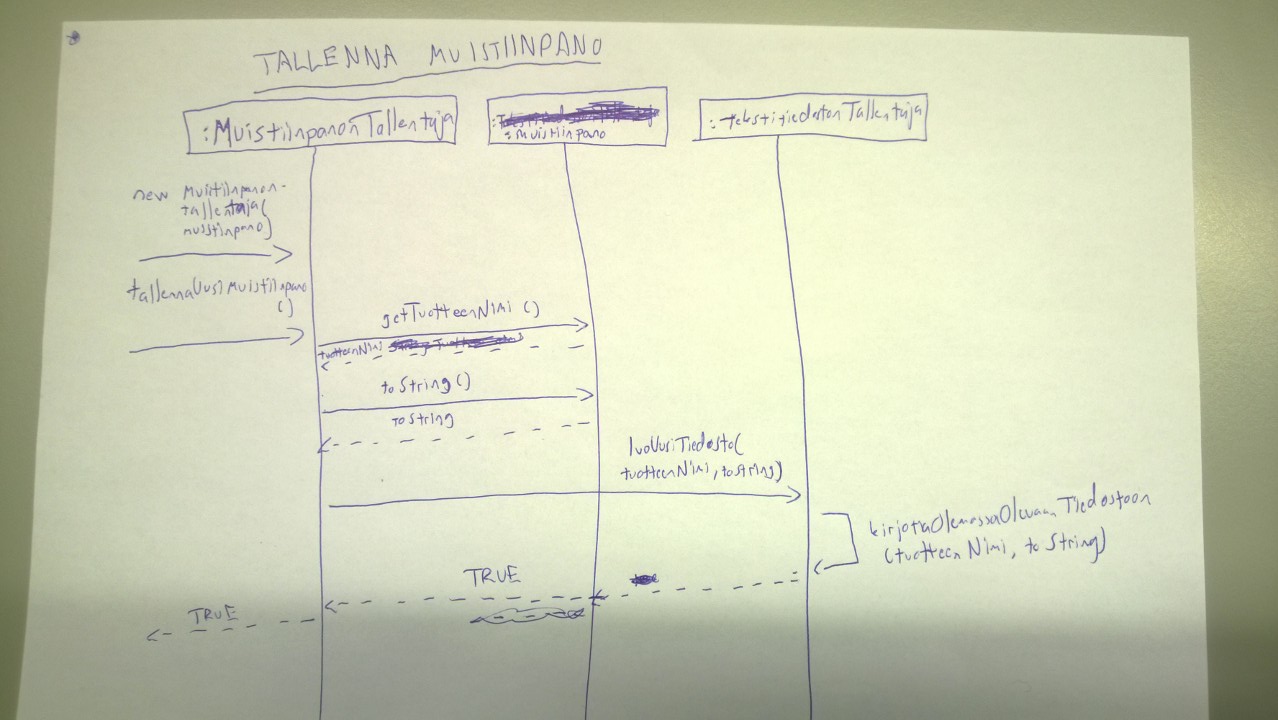 TALLENNA MUISTIINPANO
:MuistiinpanonTallentaja
:muistiinpano
:TekstitiedostonTallentaja
new Muistiinpanon-
tallentaja(
muistiinpano)
tallennaUusiMuistiinpano
()
getTuotteenNimi ()
tuotteenNimi
toString()
toString
luoUusiTiedosto(
tuotteenNimi, toString)
kirjotaOlemassaOlevaanTiedostoon
(tuotteenNimi, toString)
TRUE
TRUE